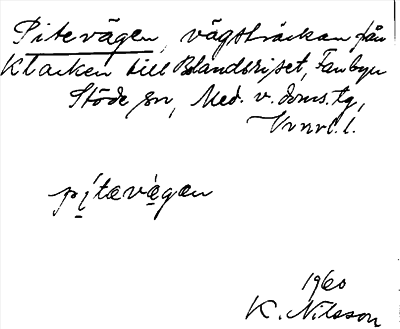 Pitevägen, vägsträckan från
Klacken till Blandsriset, Fanbyn
Stöde sn, Med. v. doms. tg,
Vnrl. l.
pi̱tævä̱gæn
1960
K. Nilsson